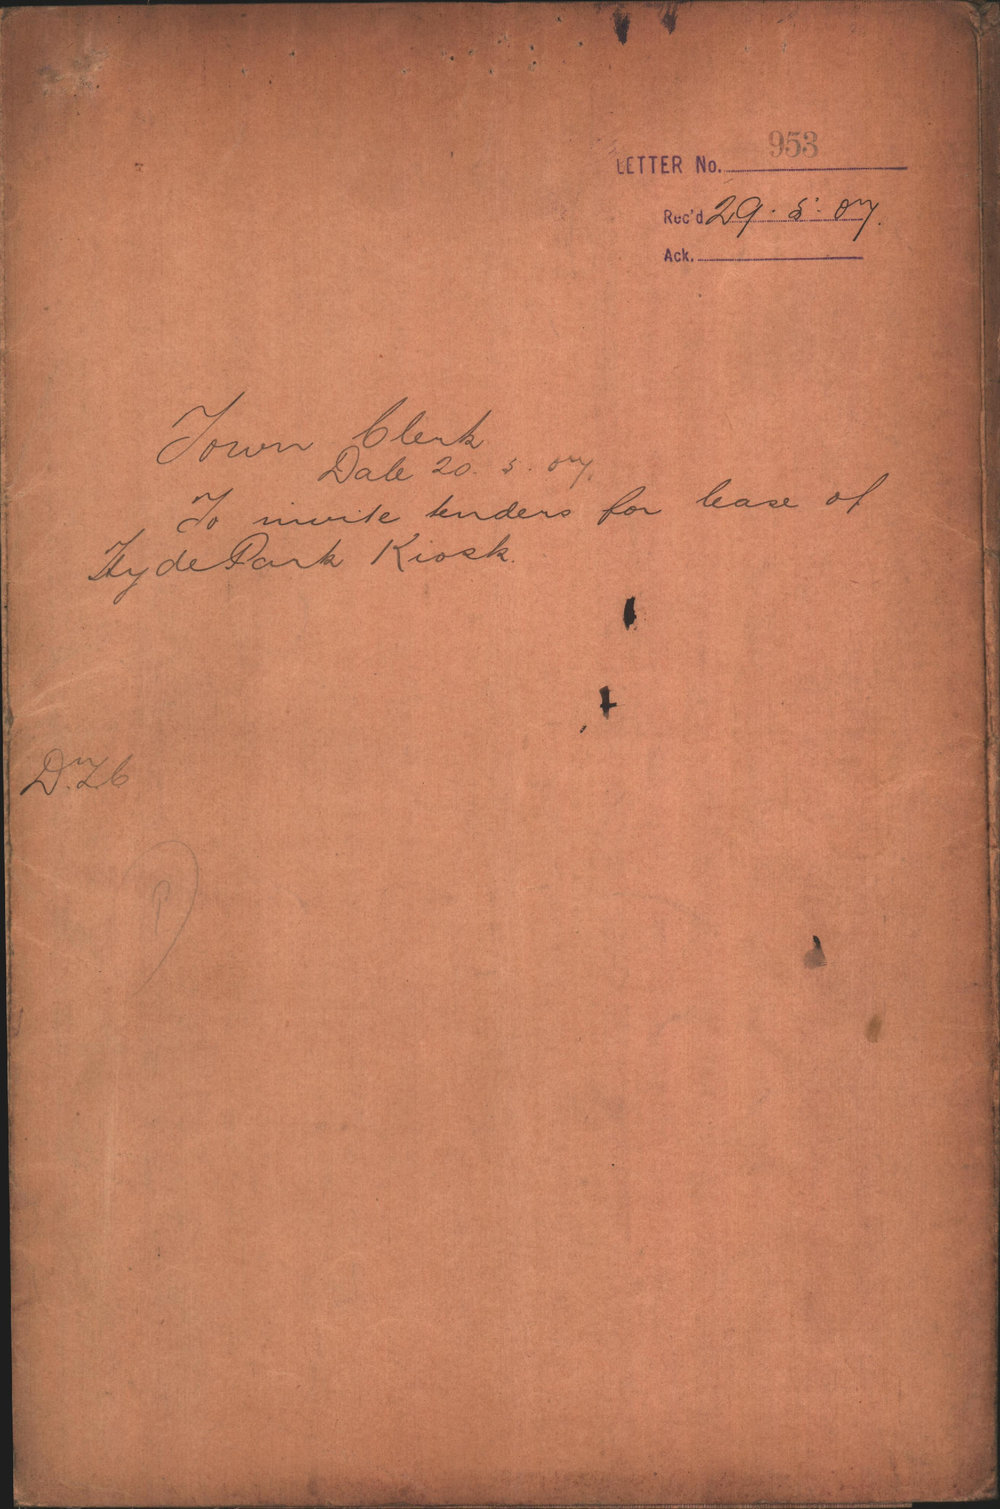 LETTER No. 953
Rec'd 29. 5. 07.
Ack.
Town Clerk
Date 20. 5. 07.
To invite tenders for lease of
Hyde Park Kiosk.